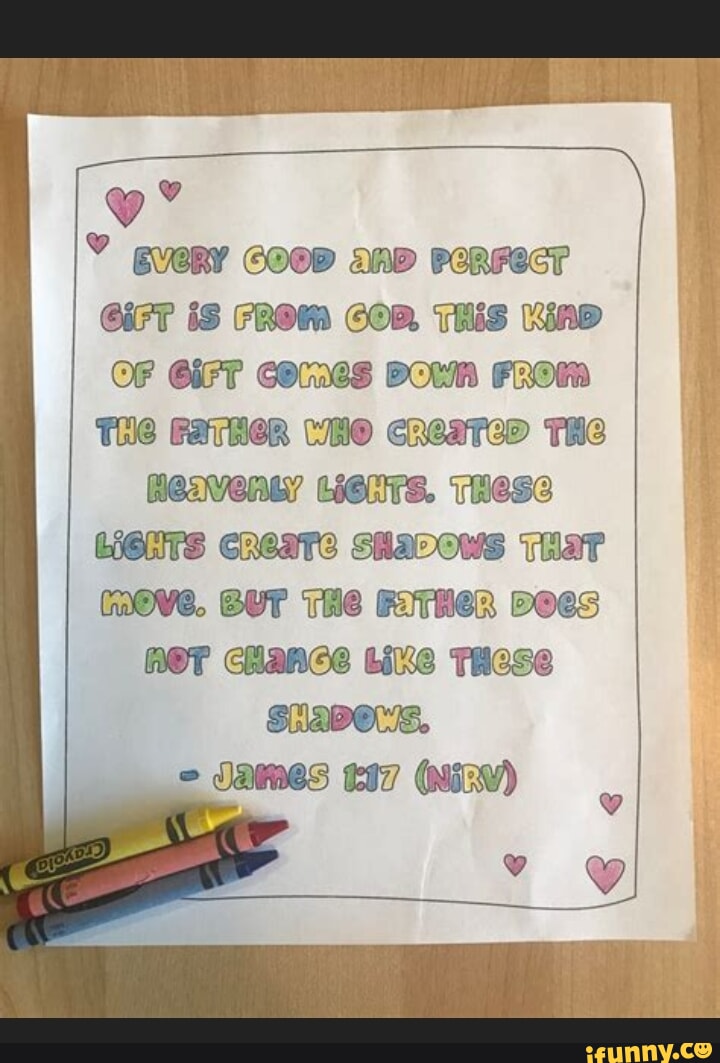 EVERY GOOD aND PERFECT
GiFT iS FROM GOD. THiS KiND
OF GiFT COMES DOWN FROM
THE FaTHER WHO CREaTED THE
HEaVENLY LiGHTS. THESE
LiGHTS CREaTE SHaDOWS THaT
MOVE. BUT THE FaTHER DOES
NOT CHaNGE LiKE THESE
SHaDOWS.
- JaMES 1:17 (NiRV)
Crayola
ifunny.co